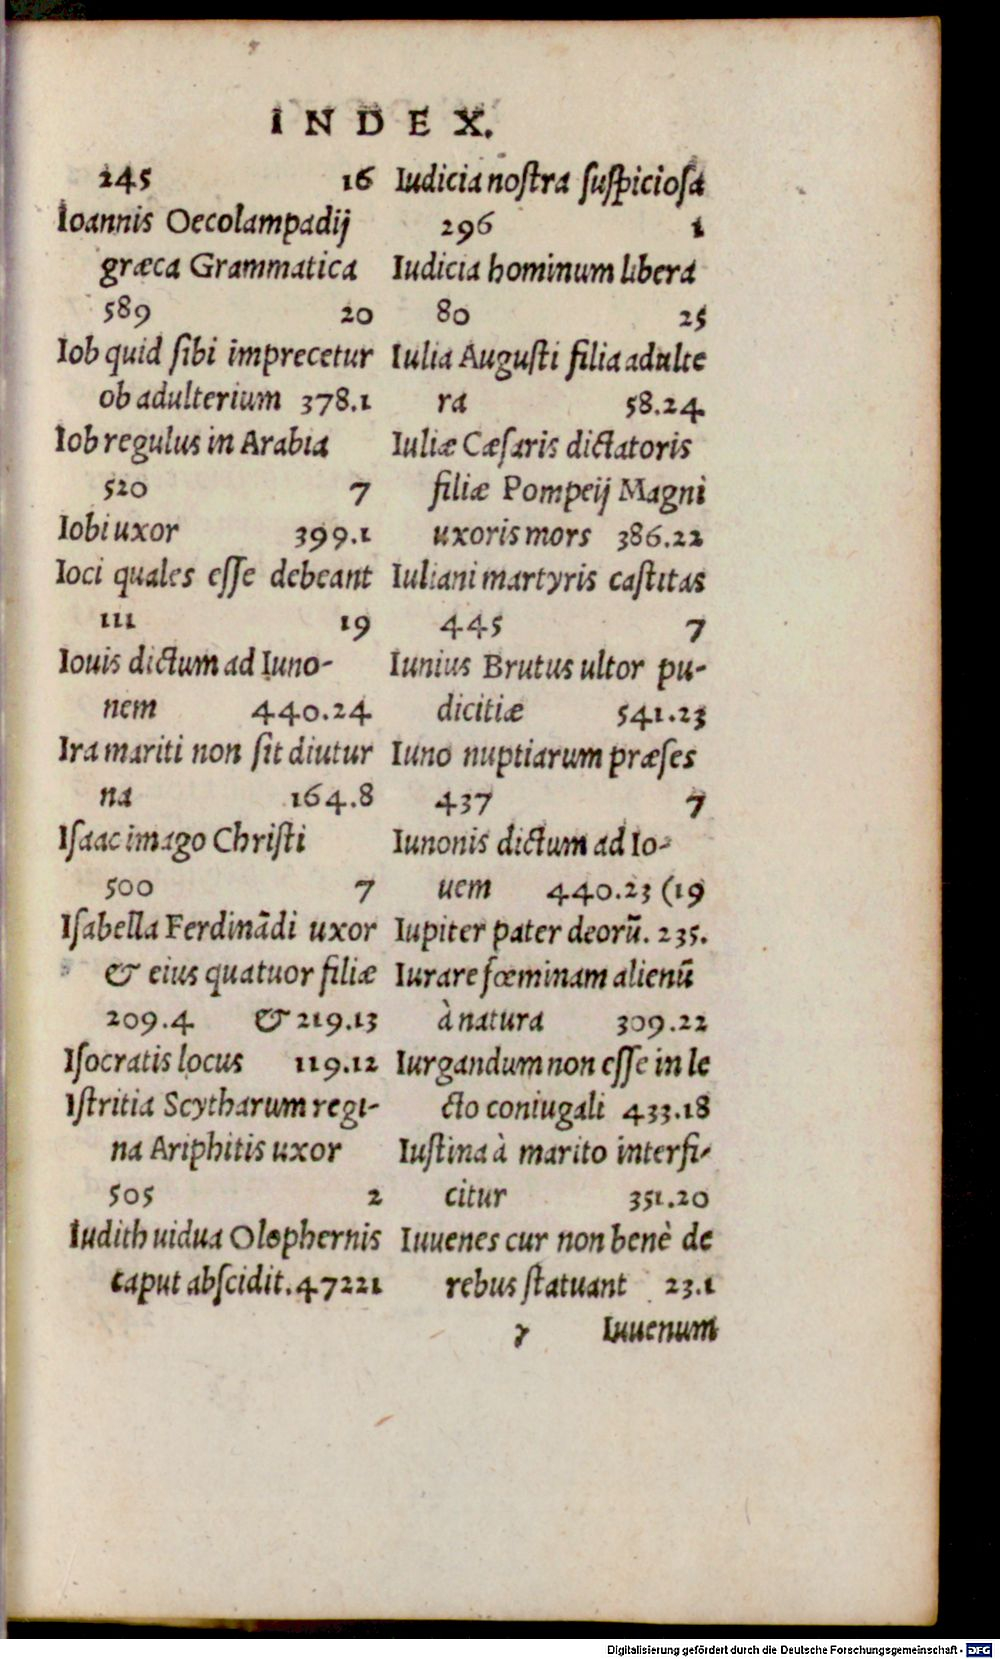 INDEX.
245 16
Ioannis Oecolampadij
græca Grammatica
589 20
Iob quid sibi imprecetur
ob adulterium 378.1
Iob regulus in Arabia
520 7
Iobi uxor 399.1
Ioci quales esse debeant
111 19
Iouis dictum ad Iuno-
nem 440.24
Ira mariti non sit diutur
na 164.8
Isaac imago Christi
500 7
Isabella Ferdinādi uxor
& eius quatuor filiæ
209.4 & 219.13
Isocratis locus 119.12
Istritia Scytharum regi-
na Ariphitis uxor
505 2
Iudith uidua Olophernis
caput abscidit. 47221
Iudicia nostra suspiciosa
296 1
Iudicia hominum libera
80 25
Iulia Augusti filia adulte
ra 58.24
Iuliæ Cæsaris dictatoris
filiæ Pompeij Magni
uxoris mors 386.22
Iuliani martyris castitas
445 7
Iunius Brutus ultor pu-
dicitiæ 541.23
Iuno nuptiarum præses
437 7
Iunonis dictum ad Io-
uem 440.23 (19
Iupiter pater deorū. 235.
Iurare fœminam alienū
à natura 309.22
Iurgandum non esse in le
cto coniugali 433.18
Iustina à marito interfi-
citur 351.20
Iuuenes cur non benè de
rebus statuant 23.1
γ Iuuenum
Digitalisierung gefördert durch die Deutsche Forschungsgemeinschaft - DFG